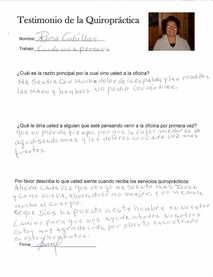 Testimonio de la Quiropráctica
Nombre: Rosa Cubillas
Trabajo: Cuido una persona
¿Cuál es la razón principal por la cual vino usted a la oficina?
Me sentia con mucho dolor de la espalda y las rodillas
las manos y hombros no podia dormir bien.
¿Qué le diría usted a alguien que esté pensando venir a la oficina por primera vez?
Que no pierda tiempo porque la enfermedad se va
agudisando mas y los dolores son cada vez mas
fuertes.
Por favor describa lo que usted siente cuando recibe los servicios quiroprácticos:
Ahora cada vez que vengo me siento mas
como nueva, ahora duermo mejor, y no me duele
mucho el cuerpo.
Se que Dios ha puesto a este hombre en nuestro
camino para que nos ayude a todos nosotros
estoy muy agradecida por
Firma